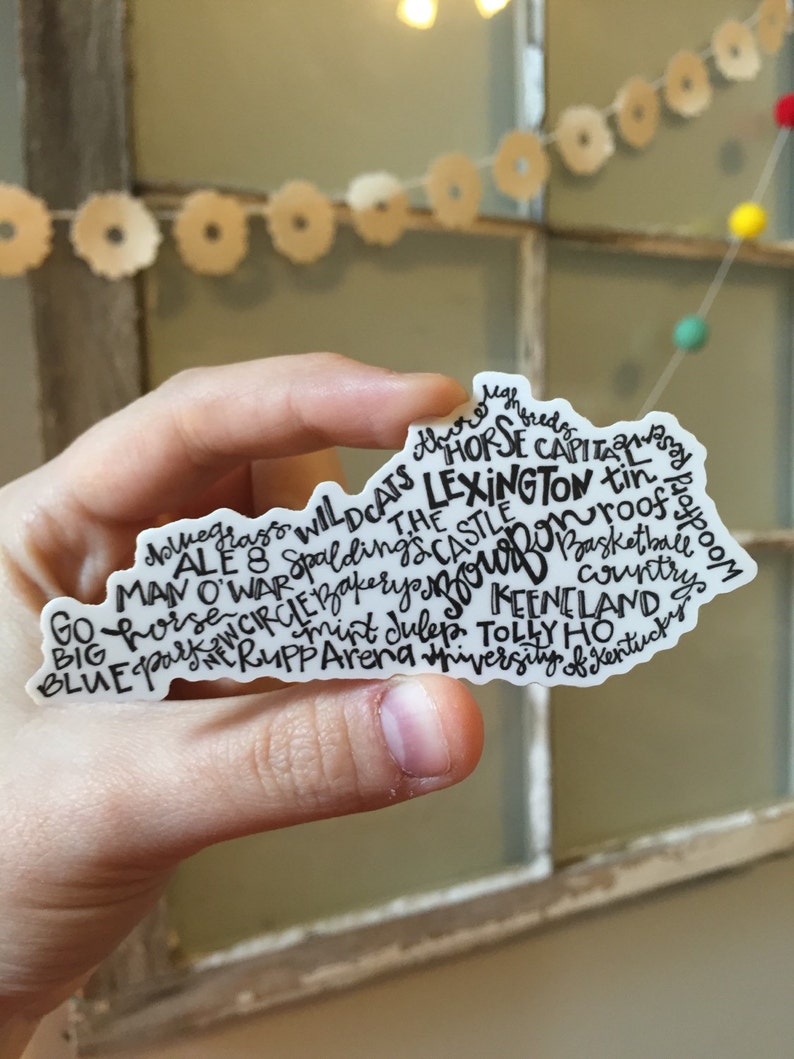 thoroughbreds
HORSE CAPITAL
LEXINGTON
tin
roof
Woodford Reserve
WILDCATS
THE
CASTLE
Bourbon
Basketball
country
bluegrass
ALE 8
Spalding's
Bakery
MAN O' WAR
KEENELAND
GO
BIG
BLUE
horse
park
NEW CIRCLE
mint Julep
TOLLY HO
Rupp Arena
University of Kentucky